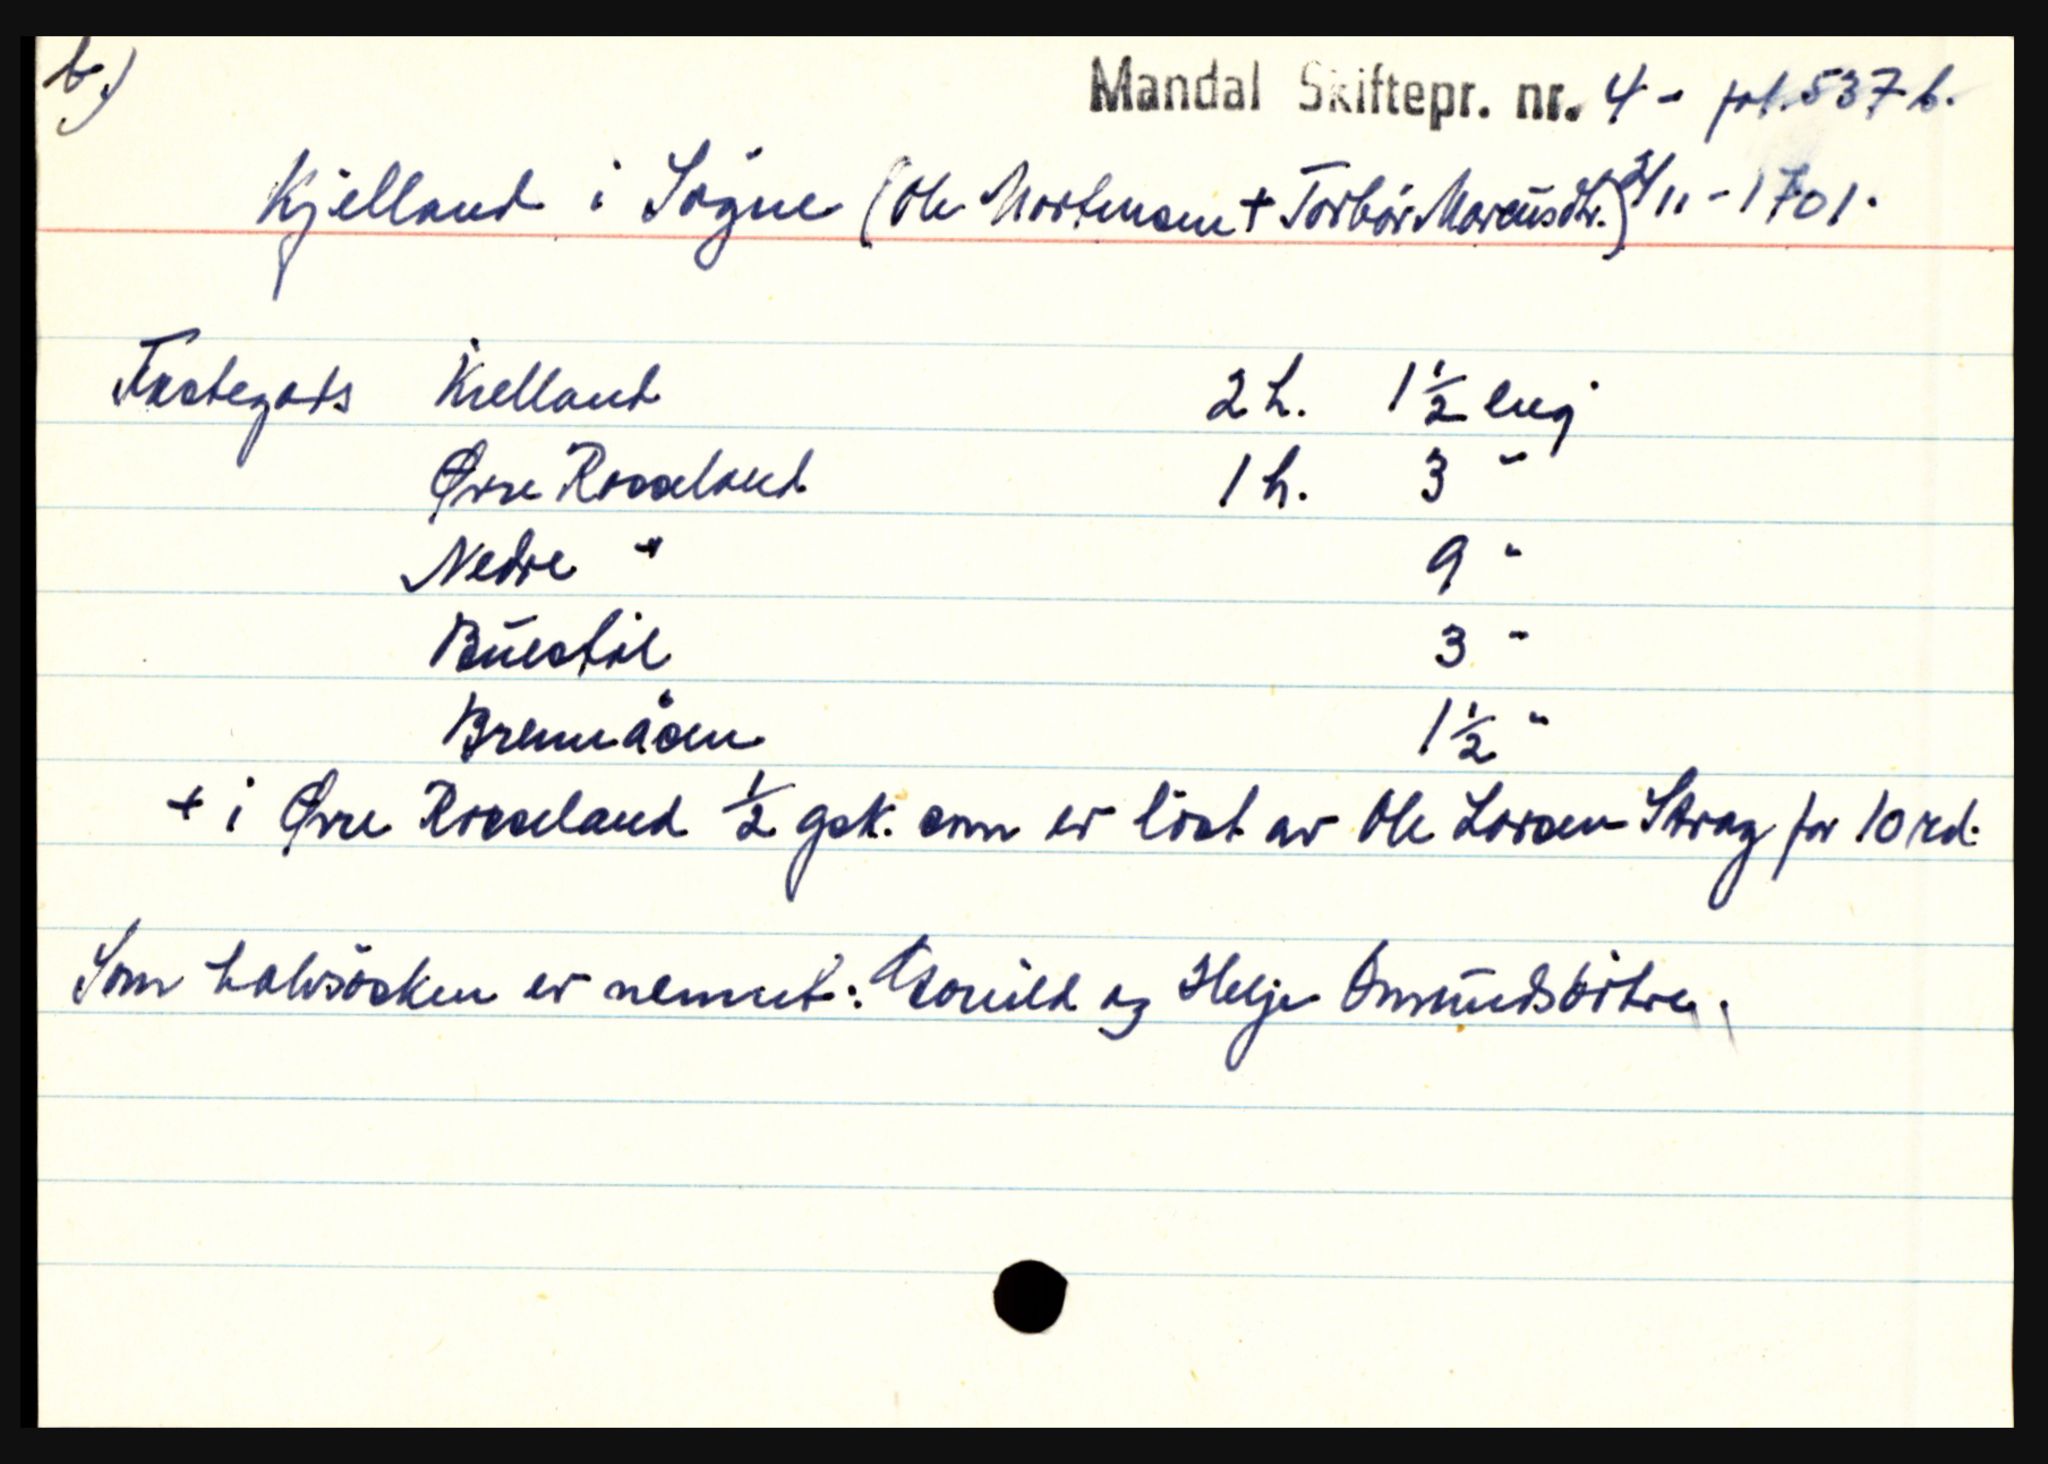 b.)
Mandal Skiftepr. nr. 4 - fol. 537 b.
Kjelland i Søgne (Ole Mortensen + Torbør Marcusdtr.) /11 - 1701.
Fastegods Kielland 2 h. 1 1/2 eng
Øvre Rosseland 1 h. 3 "
Nedre " 9 "
Buestøl 3 "
Brennåsen 1 1/2 "
+ i Øvre Rosseland 1/2 gsk. som er løst av Ole Larsen Stray for 10 rd.
Som halvsøsken er nemnt: Gonild og Helje Omundsdøtre.